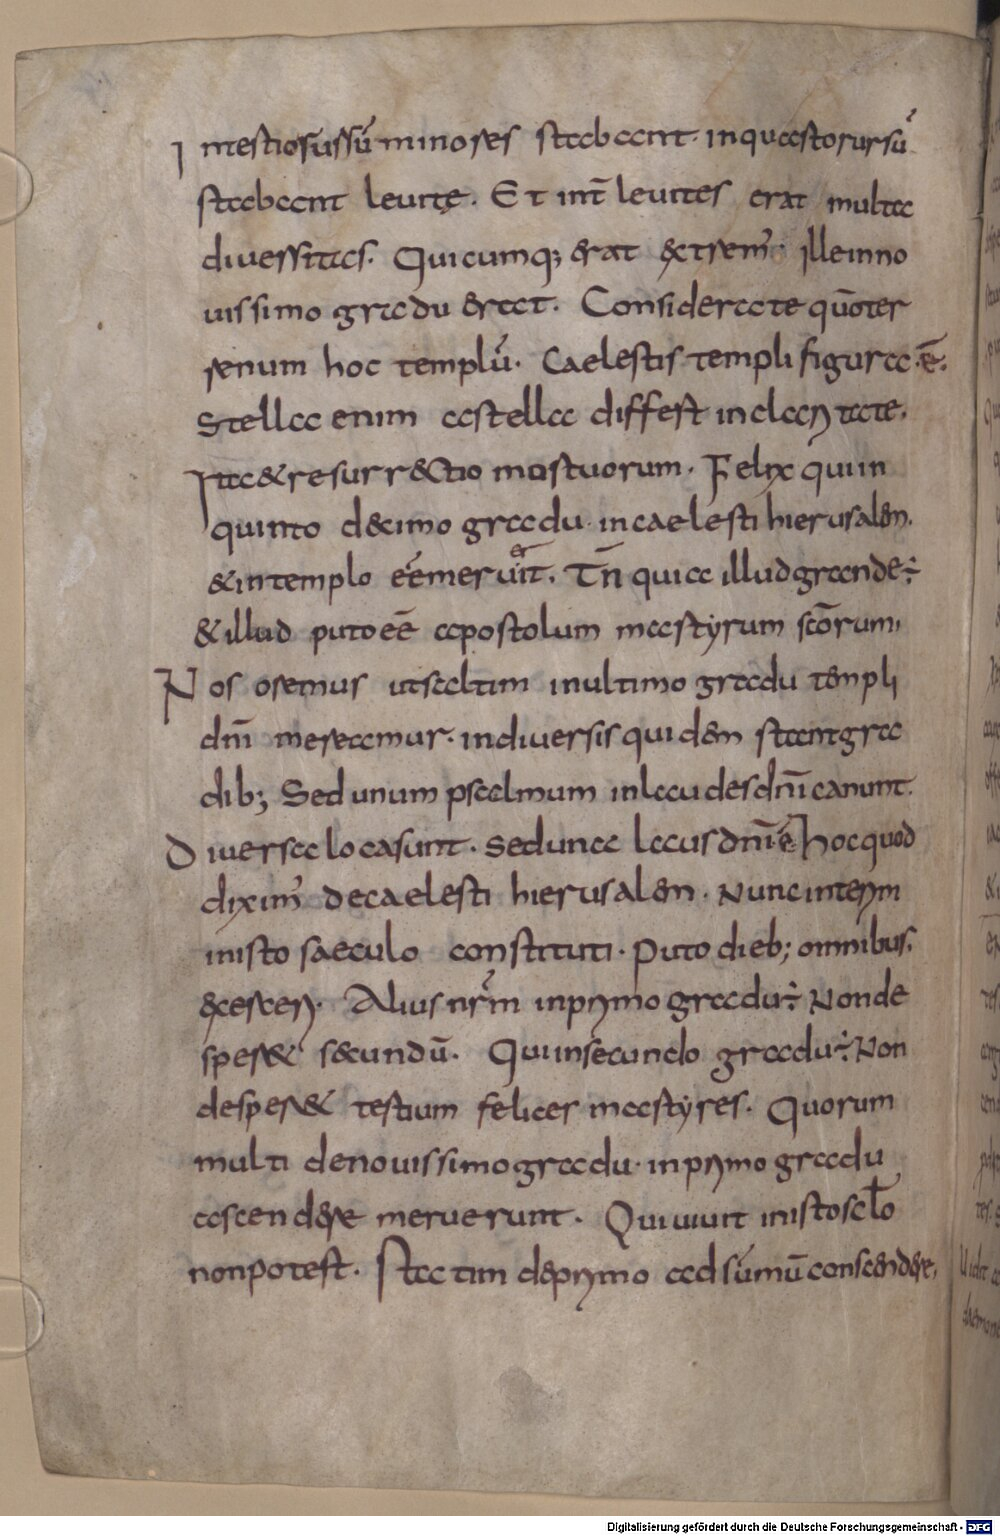 Intertiorursũ minores stabant. inquartorursũ
stabant leuitę. Et int̄ leuites erat multa
diuersitas. Quicumq; erat extrem᾽. ille inno
uissimo gradu erat. Considerate quōter
renum hoc templũ. Caelestis templi figura.ē.
Stella enim astella differt inclaritate.
Ita & resurrectio mortuorum. Felix quiin
quinto decimo gradu incaelesti hierusalem.
& intemplo eē meruerit. Tn̄ quia illud grande.
& illud puto eē apostolum martyrum scōrum.
Nos oremus ut saltim inultimo gradu templi
dn̄i mereamur. indiuersis quidem stant gra
dib; Sed unum psalmum inlaudes dn̄i canunt.
Diuersa loca sunt. sed una laus dn̄i ē hoc quod
dixim᾽ decaelesti hierusalem. Nunc interim
inisto saeculo constituti. Puto dieb; omnibus.
ex eren. Alius nr̄m inprimo gradu. Non de
speret secundũ. Qui insecundo gradu. Non
desperet tertium felices martyres. Quorum
multi denouissimo gradu. inprimo gradu
ascendere meruerunt. Qui uiuit inisto sclō
non potest. Statim deprimo ad sũmũ conscendere,
Digitalisierung gefördert durch die Deutsche Forschungsgemeinschaft - DFG